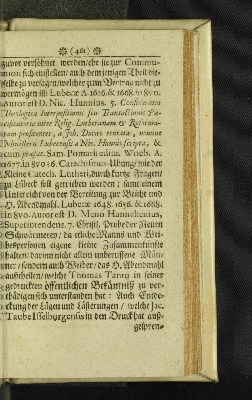 (461)
zuvor versöhnet werden/ehe sie zur Commu-
nion sich einstellen/ auch demjenigen Theil die-
selbe zu versagen/welcher zum Vertrag nicht zu
vermögen ist: Lubecæ A. 1656. & 1668. in 8vo.
Autor est D. Nic. Hunnius. 5. Consideratio
Theologica Interpositionis seu Transactionis Pa-
cificatoriæ inter Relig. Lutheranam & Reforma-
tam profitentes, a Joh. Duræo tentatæ, nomine
Ministerii Lubecensis a Nic. Hunnio scripta, &
cum præfat. Sam. Pomarii edita. Witeb. A.
1677. in 8vo. 6. Catechismus-Übung/ wie der
Kleine Catech. Lutheri, durch kurtze Fragen/
zu Lübeck soll getrieben werden; samt einem
Unterricht von der Bereitung zur Beicht und
H. Abendmahl. Lubecæ 1648. 1656. & 1668.
in 8vo. Autor est D. Meno Hannekenius,
Superintendens. 7. Christl. Probe der Neuen
Schwärmerey/ da etliche Manns und Wei-
bespersonen eigene kleine Zusammenkünfte
halten/ darinn nicht allein unberuffene Män-
ner/ sondern auch Weiber/ das H. Abendmahl
austheilen/ welche Thomas Tanto in seiner
gedruckten öffentlichen Bekäntniß zu ver-
thädigen sich unterstanden hat: Auch Entde-
ckung der Lügen und Lästerungen/ welche Jac.
Taube Isselburgensis in den Druck hat auß-
gespren-